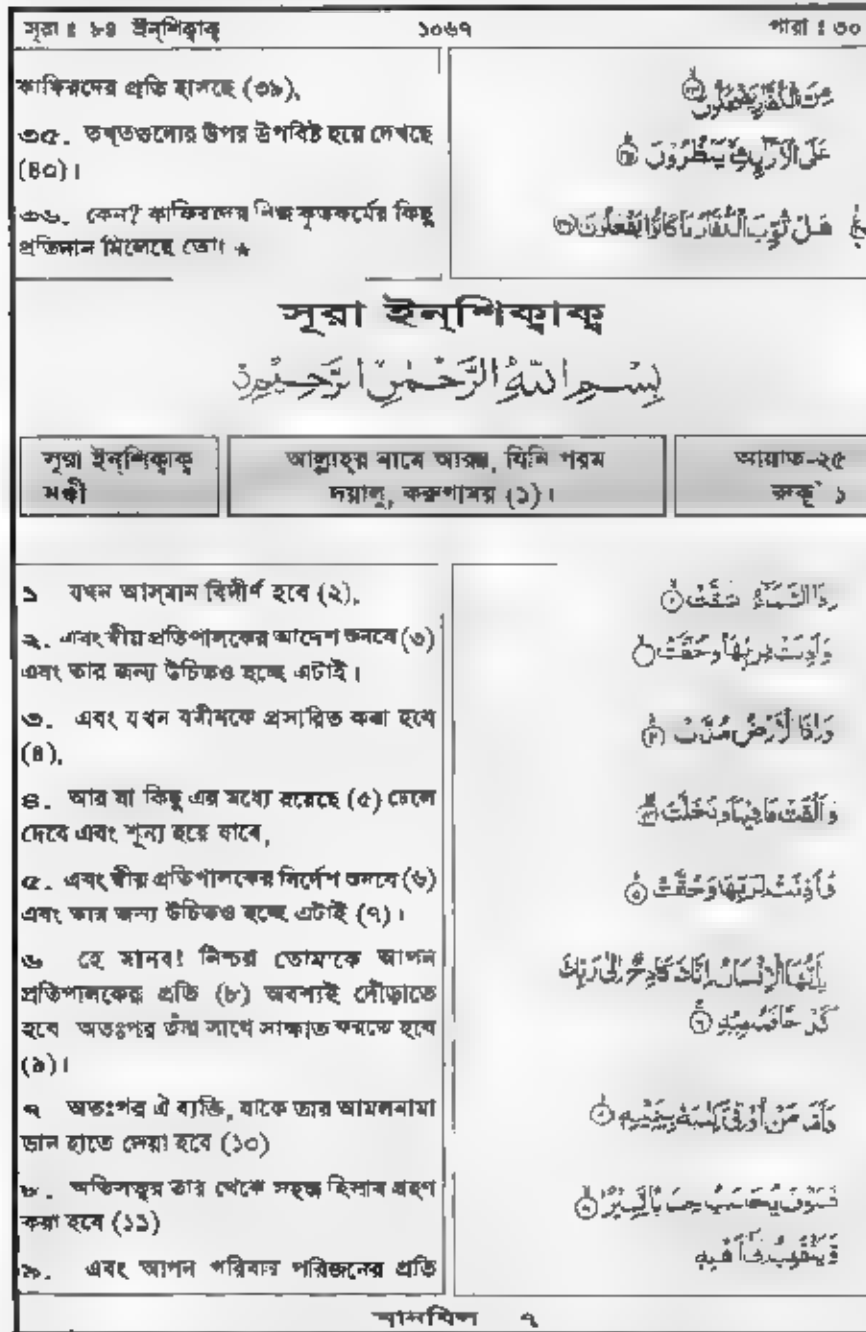 সূরা : ৮৪ ইন্‌শিক্বাক্ব ১০৬৭ পারা : ৩০
কাফিরদের প্রতি হাসছে (৩৯),
৩৫. তখ্‌তগুলোর উপর উপবিষ্ট হয়ে দেখছে
(৪০)।
৩৬. কেন? কাফিরদের নিজ কৃতকর্মের কিছু
প্রতিদান মিলেছে তো! ★
عَلَى الْأَرَآئِكِ يَنْظُرُونَ
هَلْ ثُوِّبَ الْكُفَّارُ مَا كَانُوا يَفْعَلُونَ
সূরা ইন্‌শিক্বাক্ব
بِسْمِ اللّٰهِ الرَّحْمٰنِ الرَّحِيْمِ
সূরা ইন্‌শিক্বাক্ব
মক্কী
আল্লাহ্‌র নামে আরম্ভ, যিনি পরম
দয়ালু, করুণাময় (১)।
আয়াত-২৫
রুকূ' ১
১ যখন আস্‌মান বিদীর্ণ হবে (২),
২. এবং স্বীয় প্রতিপালকের আদেশ শুনবে (৩)
এবং তার জন্য উচিতও হচ্ছে এটাই।
৩. এবং যখন যমীনকে প্রসারিত করা হবে
(৪),
৪. আর যা কিছু এর মধ্যে রয়েছে (৫) ঢেলে
দেবে এবং শূন্য হয়ে যাবে,
৫. এবং স্বীয় প্রতিপালকের নির্দেশ শুনবে (৬)
এবং তার জন্য উচিতও হচ্ছে এটাই (৭)।
৬ হে মানব! নিশ্চয় তোমাকে আপন
প্রতিপালকের প্রতি (৮) অবশ্যই দৌঁড়াতে
হবে অতঃপর তাঁর সাথে সাক্ষাত করতে হবে
(৯)।
৭ অতঃপর ঐ ব্যক্তি, যাকে তার আমলনামা
ডান হাতে দেয়া হবে (১০)
৮. অতিসত্বর তার থেকে সহজ হিসাব গ্রহণ
করা হবে (১১)
৯. এবং আপন পরিবার পরিজনের প্রতি
وَأَذِنَتْ لِرَبِّهَا وَحُقَّتْ
وَإِذَا الْأَرْضُ مُدَّتْ
وَأَلْقَتْ مَا فِيهَا وَتَخَلَّتْ
وَأَذِنَتْ لِرَبِّهَا وَحُقَّتْ
يٰٓأَيُّهَا الْإِنْسَانُ إِنَّكَ كَادِحٌ إِلٰى رَبِّكَ
মানযিল - ৭